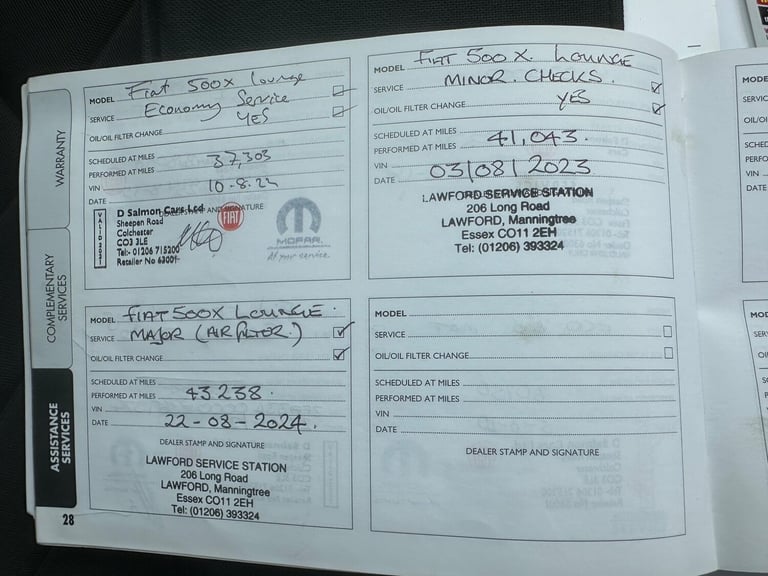 WARRANTY
COMPLEMENTARY
SERVICES
ASSISTANCE
SERVICES
MODEL Fiat 500X Lounge
SERVICE Economy Service
OIL/OIL FILTER CHANGE YES
SCHEDULED AT MILES
PERFORMED AT MILES 37,303
VIN
DATE
DEALER STAMP AND SIGNATURE
VALID 2021
D Salmon Cars Ltd
Sheepen Road
Colchester
CO3 3LE
Tel:- 01206 715200
Retailer No 63001-
FIAT
MOPAR
At your service
MODEL FIAT 500X LOUNGE
SERVICE MINOR CHECKS.
OIL/OIL FILTER CHANGE YES
SCHEDULED AT MILES
PERFORMED AT MILES 41,043.
VIN
DATE 03/08/2023
LAWFORD SERVICE STATION
206 Long Road
LAWFORD, Manningtree
Essex CO11 2EH
Tel: (01206) 393324
MODEL FIAT 500X LOUNGE.
SERVICE MAJOR
OIL/OIL FILTER CHANGE
SCHEDULED AT MILES
PERFORMED AT MILES 43238.
VIN
DATE 22-08-2024.
DEALER STAMP AND SIGNATURE
LAWFORD SERVICE STATION
206 Long Road
LAWFORD, Manningtree
Essex CO11 2EH
Tel: (01206) 393324
MODEL
SERVICE
OIL/OIL FILTER CHANGE
SCHEDULED AT MILES
PERFORMED AT MILES
VIN
DATE
DEALER STAMP AND SIGNATURE
28